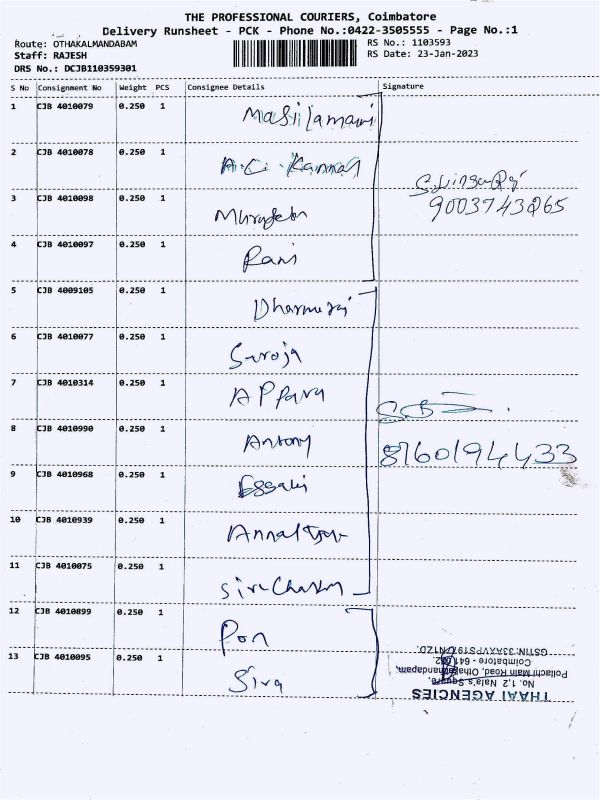 THE PROFESSIONAL COURIERS, Coimbatore
Delivery Runsheet - PCK - Phone No.:0422-3505555 - Page No.:1
Route: OTHAKALMANDABAM
Staff: RAJESH
DRS No.: DCJB110359301
RS No.: 1103593
RS Date: 23-Jan-2023
S No Consignment No Weight PCS Consignee Details Signature
1 CJB 4010079 0.250 1 Masilamani
2 CJB 4010078 0.250 1 A.C. Kannan
3 CJB 4010098 0.250 1 Murugesan
9003743265
4 CJB 4010097 0.250 1 Rani
5 CJB 4009105 0.250 1 Dharmaraj
6 CJB 4010077 0.250 1 Saroja
7 CJB 4010314 0.250 1
8 CJB 4010990 0.250 1 Antony 8760194433
9 CJB 4010968 0.250 1 Essaki
10 CJB 4010939 0.250 1
11 CJB 4010075 0.250 1
12 CJB 4010899 0.250 1 Pon
13 CJB 4010095 0.250 1 Siva
THAAI AGENCIES
No. 1,2, Nala's Square,
Pollachi Main Road, Othakalmandapam,
Coimbatore - 641 032.